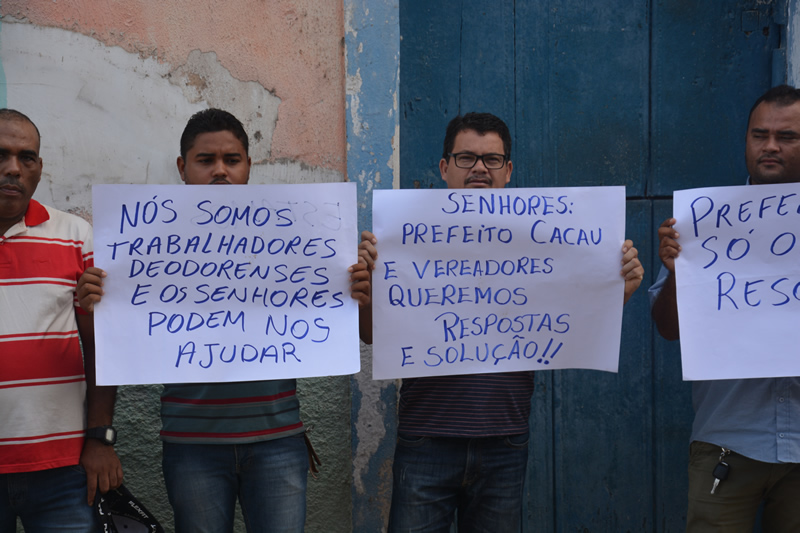 NÓS SOMOS
TRABALHADORES
DEODORENSES
E OS SENHORES
PODEM NOS
AJUDAR
SENHORES:
PREFEITO CACAU
E VEREADORES
QUEREMOS
RESPOSTAS
E SOLUÇÃO!!
PREFE
SÓ O
RESO